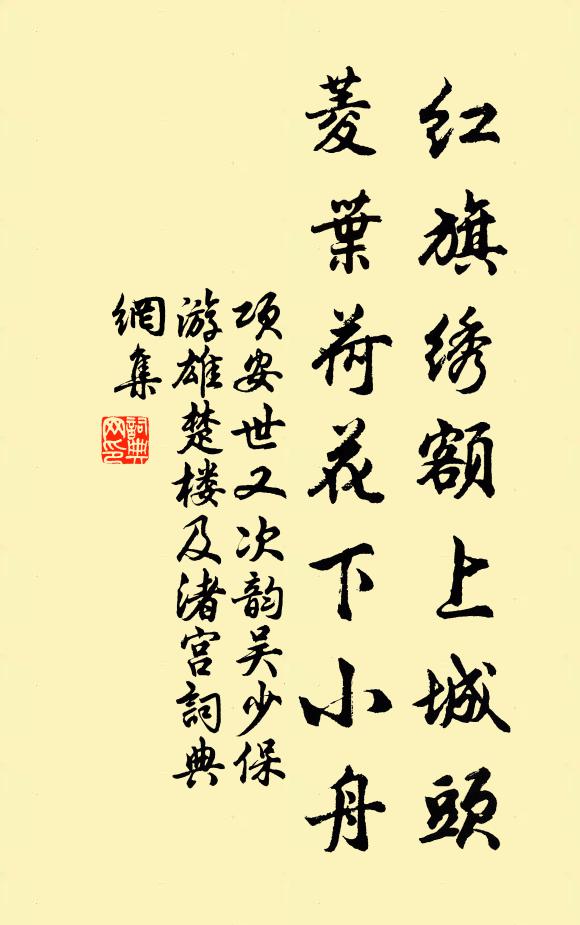 红旗绣额上城頭
菱葉荷花下小舟
项安世又次韵吴少保
游雄楚楼及渚宫詞典
網集
詞典網印